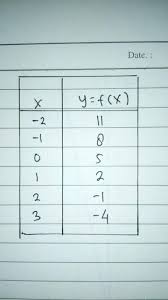 Date. :
x y=f(x)
-2 11
-1 8
0 5
1 2
2 -1
3 -4